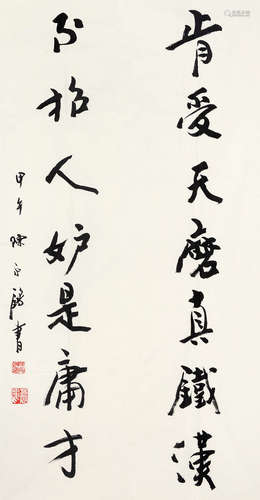 肯受天磨真鐵漢
不招人妒是庸才
甲午 書